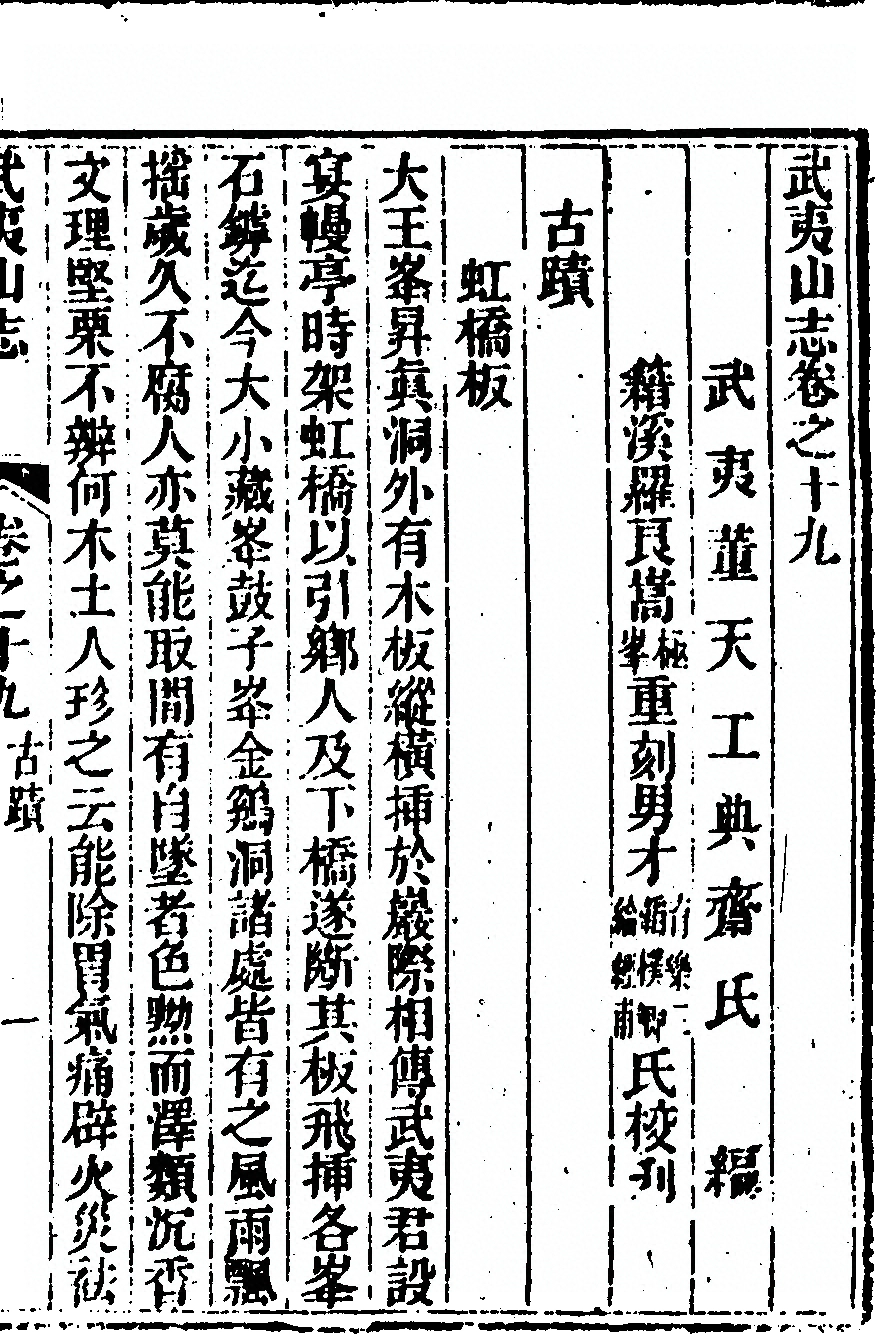 武夷山志卷之十九
武夷董天工典齋氏 編
籍溪羅良嵩極峯重刻男才氏校刊
古蹟
虹橋板
大王峯昇眞洞外有木板縱橫揷於巖際相傳武夷君設
宴幔亭時架虹橋以引鄉人及下橋遂斷其板飛揷各峯
石罅迄今大小藏峯鼓子峯金鷄洞諸處皆有之風雨飄
搖歲久不腐人亦莫能取間有自墜者色黝而澤類沉香
文理堅栗不辨何木土人珍之云能除胃氣痛辟火災祛
武夷山志 卷之十九 古蹟 一